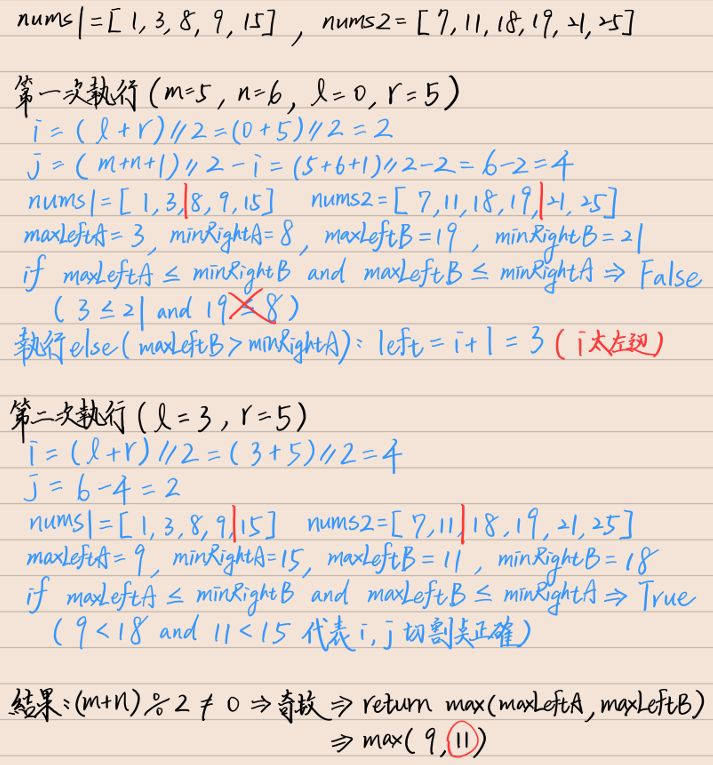 nums1=[1,3,8,9,15], nums2=[7,11,18,19,21,25]
第一次執行(m=5, n=6, l=0, r=5)
i=(l+r)//2=(0+5)//2=2
j=(m+n+1)//2-i=(5+6+1)//2-2=6-2=4
nums1=[1,3,|8,9,15] nums2=[7,11,18,19,|21,25]
maxLeftA=3, minRightA=8, maxLeftB=19, minRightB=21
if maxLeftA ≤ minRightB and maxLeftB ≤ minRightA ⇒ False
(3≤21 and 19≤8)
執行else(maxLeftB>minRightA): left=i+1=3 (i太左邊)
第二次執行(l=3, r=5)
i=(l+r)//2=(3+5)//2=4
j=6-4=2
nums1=[1,3,8,9,|15] nums2=[7,11,|18,19,21,25]
maxLeftA=9, minRightA=15, maxLeftB=11, minRightB=18
if maxLeftA ≤ minRightB and maxLeftB ≤ minRightA ⇒ True
(9<18 and 11<15 代表i,j切割點正確)
結果:(m+n)%2≠0 ⇒ 奇數 ⇒ return max(maxLeftA, maxLeftB)
⇒ max(9,11)